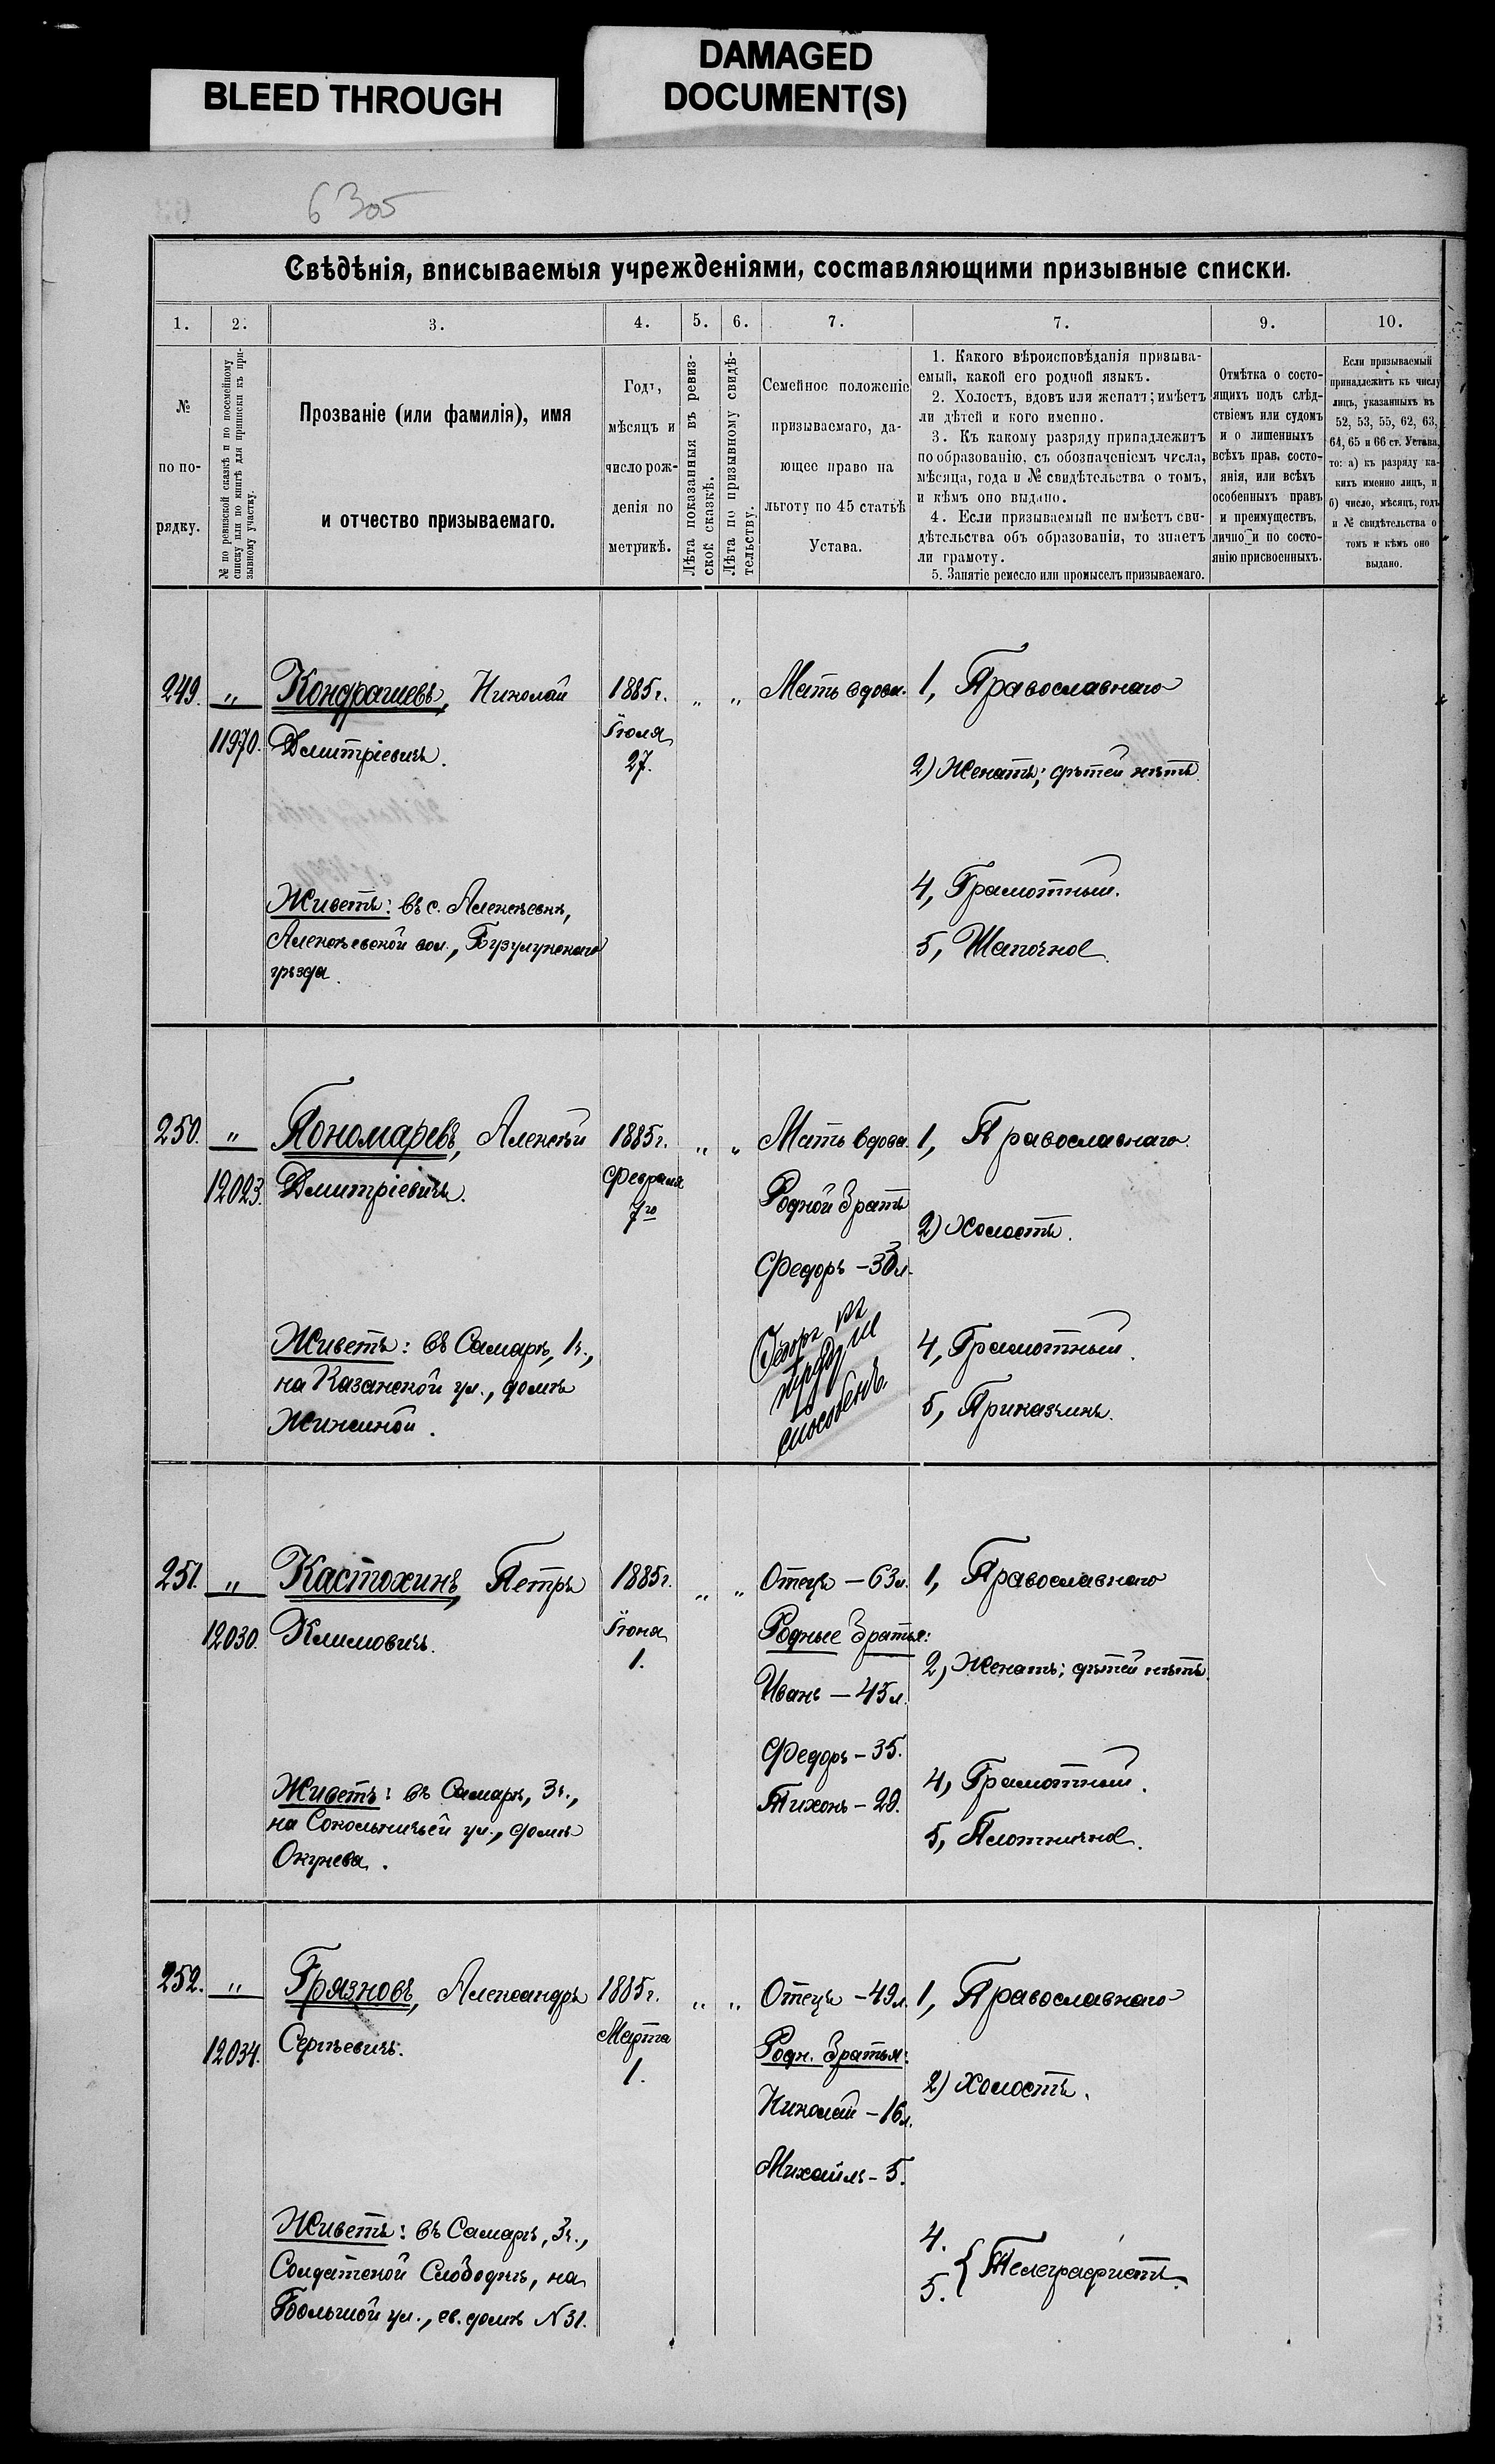 DAMAGED
DOCUMENT(S)
BLEED THROUGH
6 305
Свѣдѣнія, вписываемыя учрежденіями, составляющими призывные списки.
1. 2. 3. 4. 5. 6. 7. 7. 9. 10.
№
по по-
рядку.
№ по ревизской сказкѣ и по посемейному
списку или по книгѣ для приписки къ при-
зывному участку.
Прозваніе (или фамилія), имя
и отчество призываемаго.
Годъ,
мѣсяцъ и
число рож-
денія по
метрикѣ.
Лѣта показанныя въ ревиз-
ской сказкѣ.
Лѣта по призывному свидѣ-
тельству.
Семейное положеніе
призываемаго, да-
ющее право на
льготу по 45 статьѣ
Устава.
1. Какого вѣроисповѣданія призыва-
емый, какой его родной языкъ.
2. Холостъ, вдовъ или женатъ; имѣетъ
ли дѣтей и кого именно.
3. Къ какому разряду принадлежитъ
по образованію, съ обозначеніемъ числа,
мѣсяца, года и № свидѣтельства о томъ,
и кѣмъ оно выдано.
4. Если призываемый не имѣетъ сви-
дѣтельства объ образованіи, то знаетъ
ли грамоту.
5. Занятіе ремесло или промыселъ призываемаго.
Отмѣтка о состо-
ящихъ подъ слѣд-
ствіемъ или судомъ
и о лишенныхъ
всѣхъ прав. состо-
янія, или всѣхъ
особенныхъ правъ
и преимуществъ,
лично и по состо-
янію присвоенныхъ.
Если призываемый
принадлежитъ къ числу
лицъ, указанныхъ въ
52, 53, 55, 62, 63,
64, 65 и 66 ст. Устава,
то: а) къ разряду ка-
кихъ именно лицъ, и
б) число, мѣсяцъ, годъ
и № свидѣтельства о
томъ и кѣмъ оно
выдано.
249. „ Кондрашевъ, Николай 1885г. „ „ Мать вдова. 1, Православнаго
11970. Дмитріевичъ. Іюля
27.
2) Женатъ; дѣтей нѣтъ
Живетъ: въ с. Алексѣевкѣ,
Алексѣевской вол., Бузулукскаго
уѣзда.
4, Грамотный.
5, Шапочное.
250. „ Пономаревъ, Алексѣй 1885г. „ „ Мать вдова. 1, Православнаго.
12023. Дмитріевичъ. Февраля
7го
Родной братъ
Федоръ – 33л.
2) Холостъ.
къ
труду
способенъ.
Живетъ: въ Самарѣ, 1ч.,
на Казанской ул., домъ
4, Грамотный.
5, Приказчикъ.
251. „ Кастохинъ, Петръ 1885г. „ „ Отецъ – 63л. 1, Православнаго
12030. Климовичъ. Іюня
1.
Родные братья:
Иванъ – 45л.
Федоръ – 35.
Тихонъ – 29.
2, Женатъ; дѣтей нѣтъ.
Живетъ: въ Самарѣ, 3ч.,
на Сокольничьей ул., домъ
Окунева.
4, Грамотный.
5, Плотничное.
252. „ Грязновъ, Александръ 1885г. „ „ Отецъ – 49л. 1, Православнаго
12034. Сергѣевичъ. Марта
1.
Родн. братья:
Николай – 16л.
Михаилъ – 5.
2) Холостъ.
Живетъ: въ Самарѣ, 3ч.,
Солдатской Слободкѣ, на
Большой ул., св. домъ N 31.
4.
5. { Телеграфистъ.